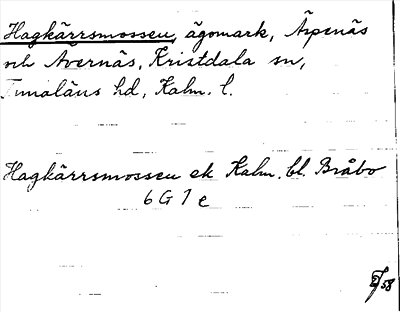 Hagkärrsmossen, ägomark, Ärpenäs
och Avernäs, Kristdala sn,
Tunaläns hd, Kalm. l.
Hagkärrsmossen ek Kalm. bl. Bråbo
6 G 1 e
58